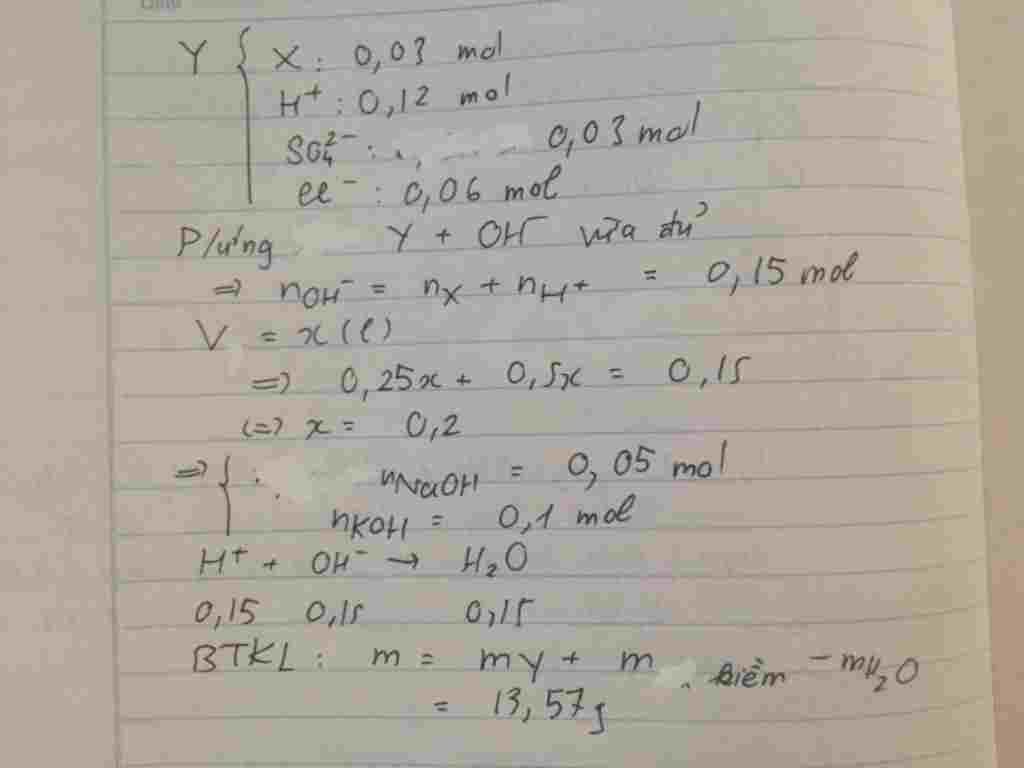 Y { X : 0,03 mol
H⁺ : 0,12 mol
SO₄²⁻ : 0,03 mol
Cl⁻ : 0,06 mol
P/ứng Y + OH⁻ vừa đủ
⇒ nOH⁻ = nX + nH⁺ = 0,15 mol
V = x (l)
⇒ 0,25x + 0,5x = 0,15
(=) x = 0,2
⇒ { nNaOH = 0,05 mol
nKOH = 0,1 mol
H⁺ + OH⁻ → H₂O
0,15 0,15 0,15
BTKL : m = mY + m kiềm - mH₂O
= 13,57g